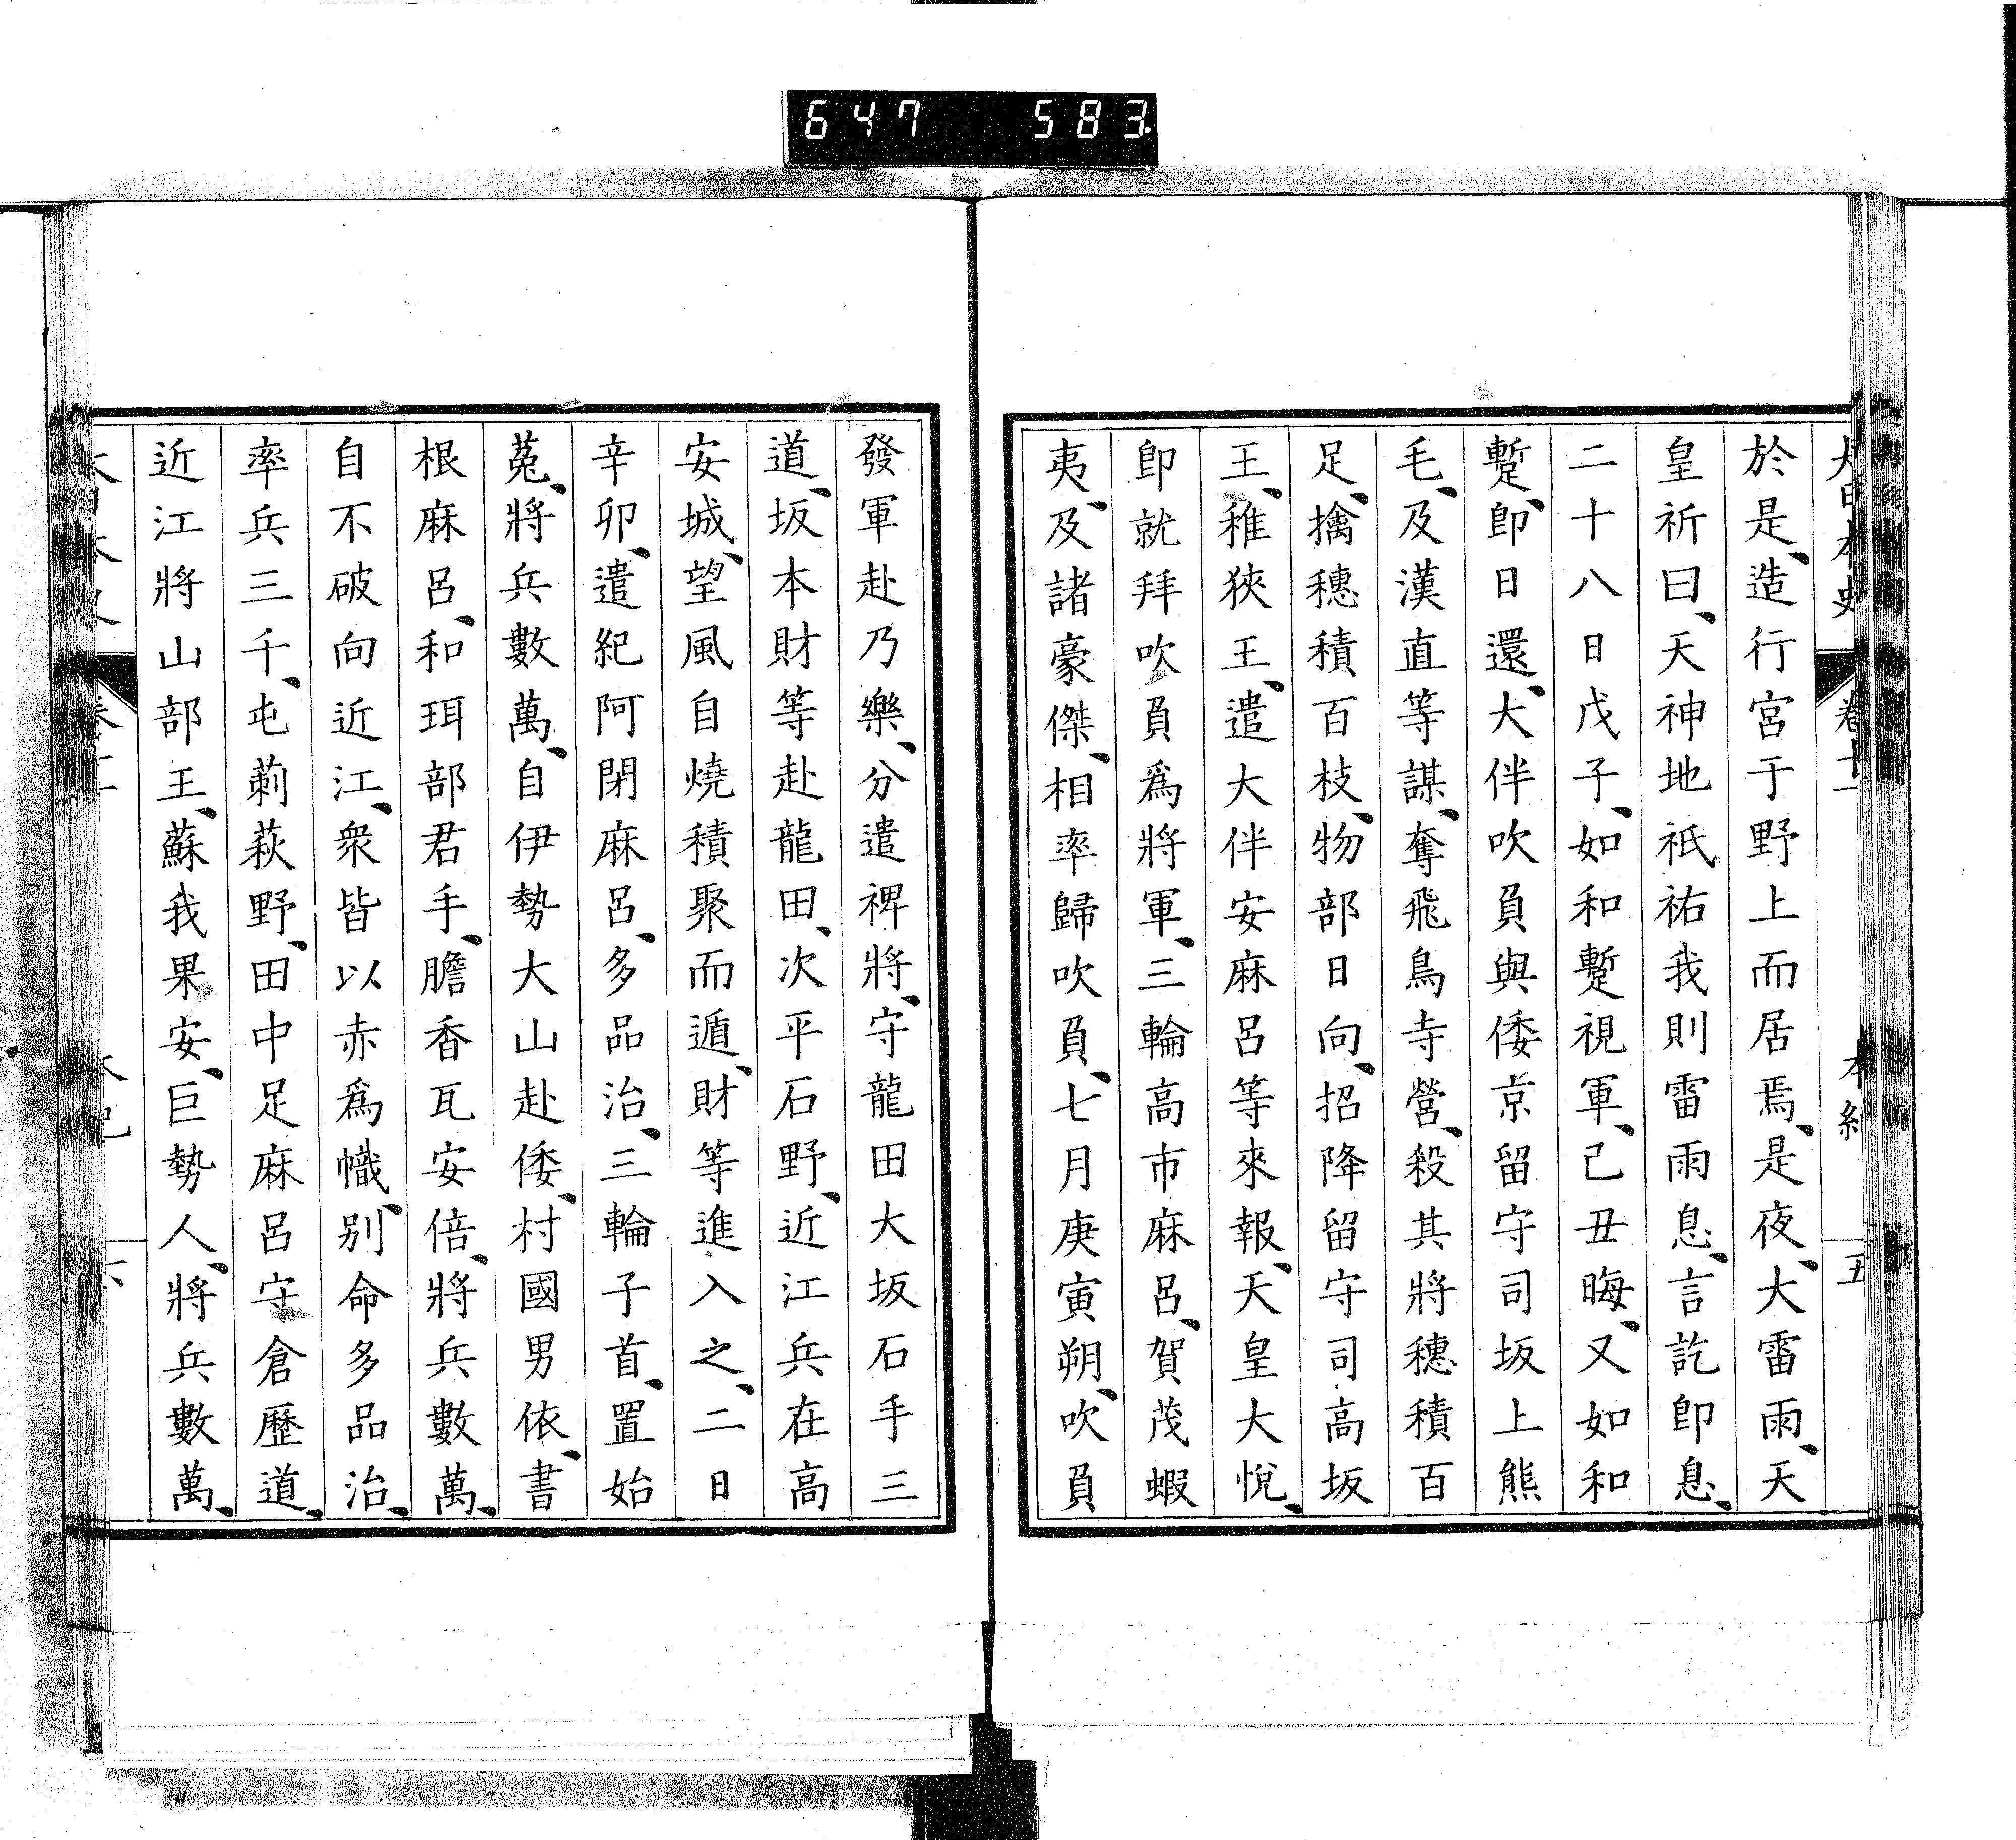 647 583
大日本史 卷十一 本紀 五
於是、造行宮于野上而居焉、是夜、大雷雨、天
皇祈曰、天神地祇祐我則雷雨息、言訖卽息、
二十八日戊子、如和蹔視軍、己丑晦、又如和
蹔、卽日還、大伴吹負與倭京留守司坂上熊
毛、及漢直等謀、奪飛鳥寺營、殺其將穗積百
足、擒穗積百枝、物部日向、招降留守司高坂
王、稚狹王、遣大伴安麻呂等來報、天皇大悅、
卽就拜吹負爲將軍、三輪高市麻呂、賀茂蝦
夷、及諸豪傑、相率歸吹負、七月庚寅朔、吹負
發軍赴乃樂、分遣裨將、守龍田大坂石手三
道、坂本財等赴龍田、次平石野、近江兵在高
安城、望風自燒積聚而遁、財等進入之、二日
辛卯、遣紀阿閉麻呂、多品治、三輪子首、置始
菟、將兵數萬、自伊勢大山赴倭、村國男依、書
根麻呂、和珥部君手、膽香瓦安倍、將兵數萬、
自不破向近江、衆皆以赤爲幟、別命多品治、
率兵三千、屯莿萩野、田中足麻呂守倉歷道、
近江將山部王、蘇我果安、巨勢人、將兵數萬、